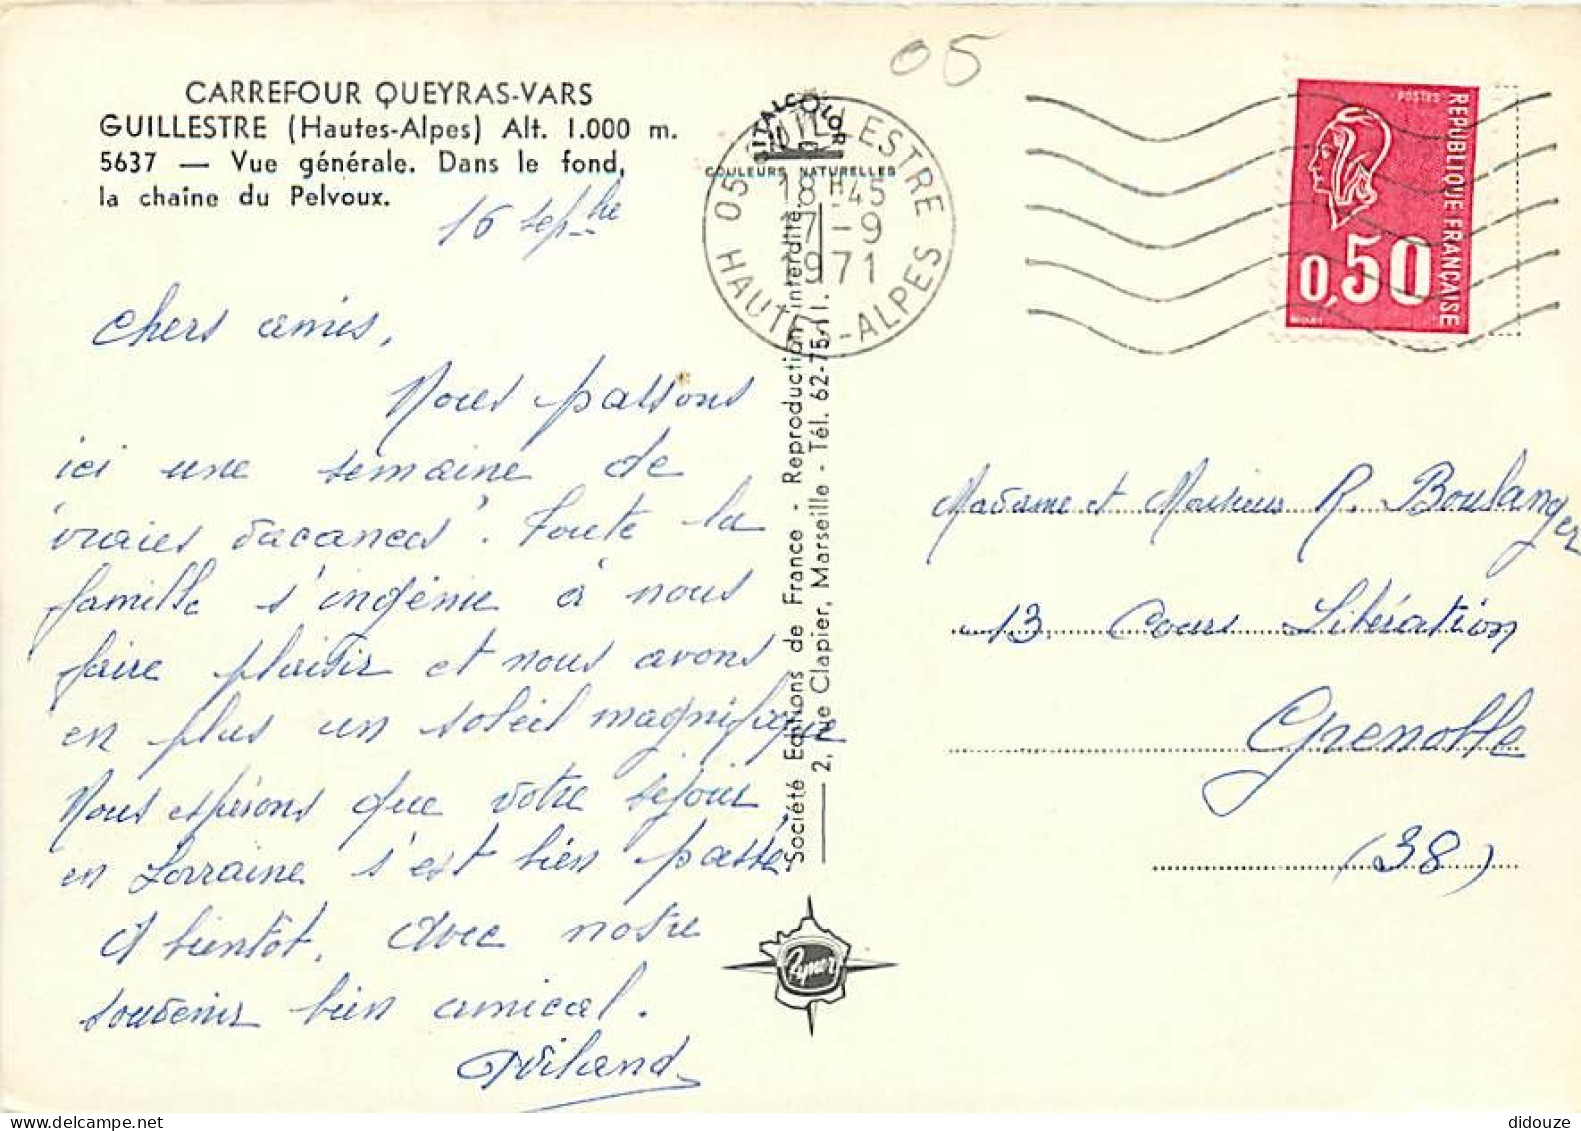 05
CARREFOUR QUEYRAS-VARS
GUILLESTRE (Hautes-Alpes) Alt. 1.000 m.
5637 — Vue générale. Dans le fond,
la chaîne du Pelvoux.
16 sepbre
Chers amis,
Nous passons
ici une semaine de
vraies vacances. Toute la
famille s'ingénie à nous
faire plaisir et nous avons
en plus un soleil magnifique
Nous espérons que votre séjour
en Lorraine s'est bien passé.
A bientôt. Avec notre
souvenir bien amical.
ITALCOLOR
COULEURS NATURELLES
05 GUILLESTRE
18H45
17-9
1971
HAUTES-ALPES
Société Editions de France - Reproduction interdite.
2, rue Clapier, Marseille - Tél. 62-75-11.
POSTES
REPUBLIQUE FRANÇAISE
0,50
BEQUET
Madame et Monsieur R. Boulanger
13 Cours Libération
Grenoble
(38)
didouze